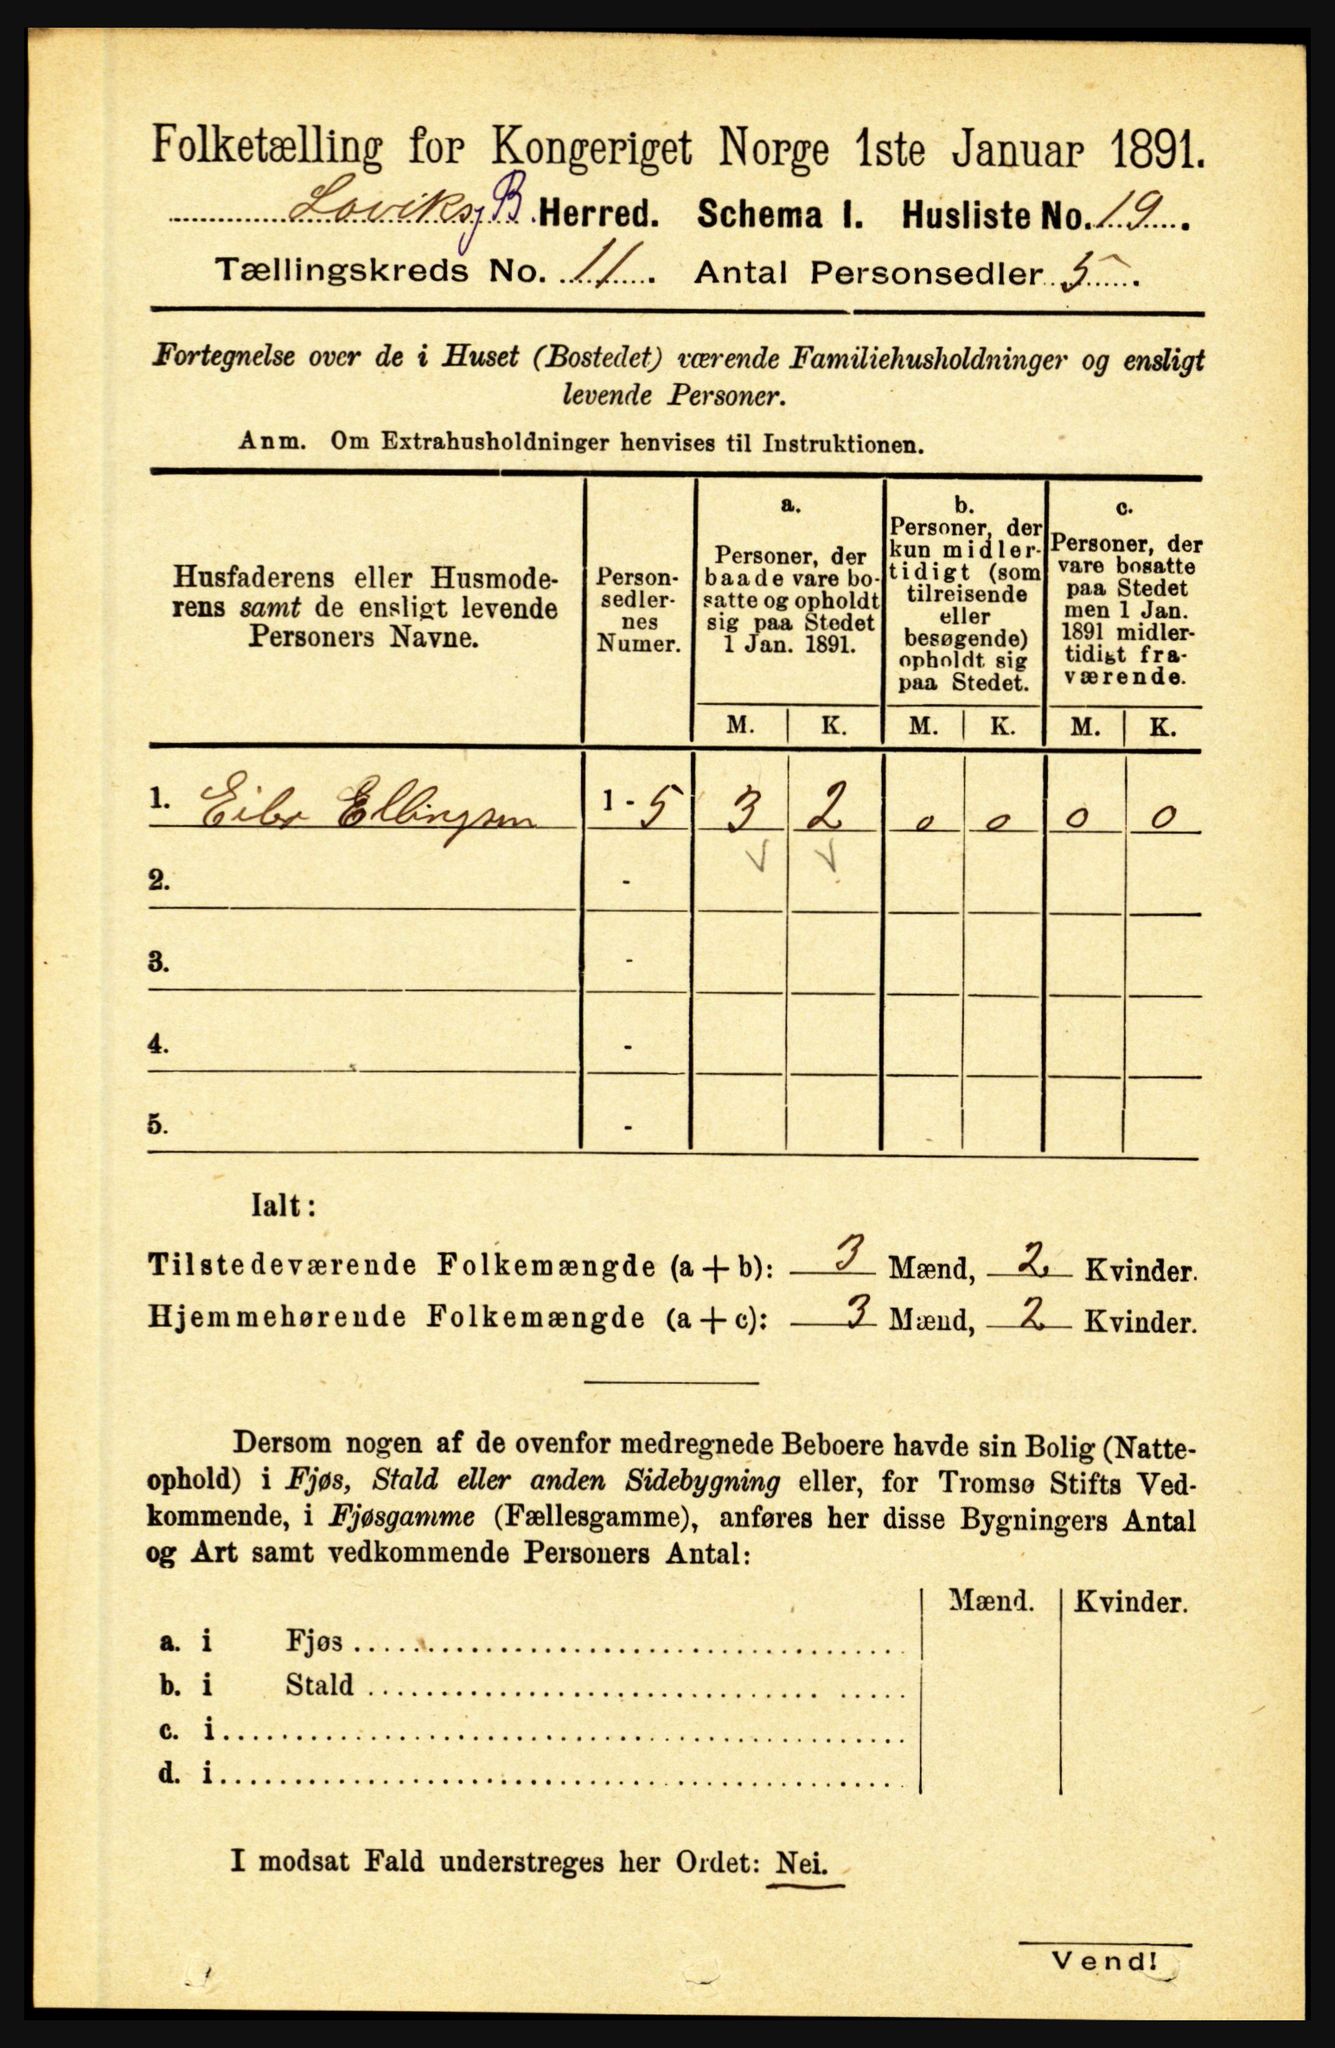 Folketælling for Kongeriget Norge 1ste Januar 1891.
Loviks B Herred. Schema I. Husliste No. 19.
Tællingskreds No. 11. Antal Personsedler 5.
Fortegnelse over de i Huset (Bostedet) værende Familiehusholdninger og ensligt
levende Personer.
Anm. Om Extrahusholdninger henvises til Instruktionen.
Husfaderens eller Husmode-
rens samt de ensligt levende
Personers Navne.
Person-
sedler-
nes
Numer.
a.
Personer, der
baade vare bo-
satte og opholdt
sig paa Stedet
1 Jan. 1891.
b.
Personer, der
kun midler-
tidigt (som
tilreisende
eller
besøgende)
opholdt sig
paa Stedet.
c.
Personer, der
vare bosatte
paa Stedet
men 1 Jan.
1891 midler-
tidigt fra-
værende.
M. K. M. K. M. K.
1. Ellingsen 1 - 5 3 2 0 0 0 0
2. -
3. -
4. -
5. -
Ialt:
Tilstedeværende Folkemængde (a + b): 3 Mænd, 2 Kvinder.
Hjemmehørende Folkemængde (a + c): 3 Mænd, 2 Kvinder.
Dersom nogen af de ovenfor medregnede Beboere havde sin Bolig (Natte-
ophold) i Fjøs, Stald eller anden Sidebygning eller, for Tromsø Stifts Ved-
kommende, i Fjøsgamme (Fællesgamme), anføres her disse Bygningers Antal
og Art samt vedkommende Personers Antal:
Mænd. Kvinder.
a. i Fjøs
b. i Stald
c. i
d. i
I modsat Fald understreges her Ordet: Nei.
Vend!